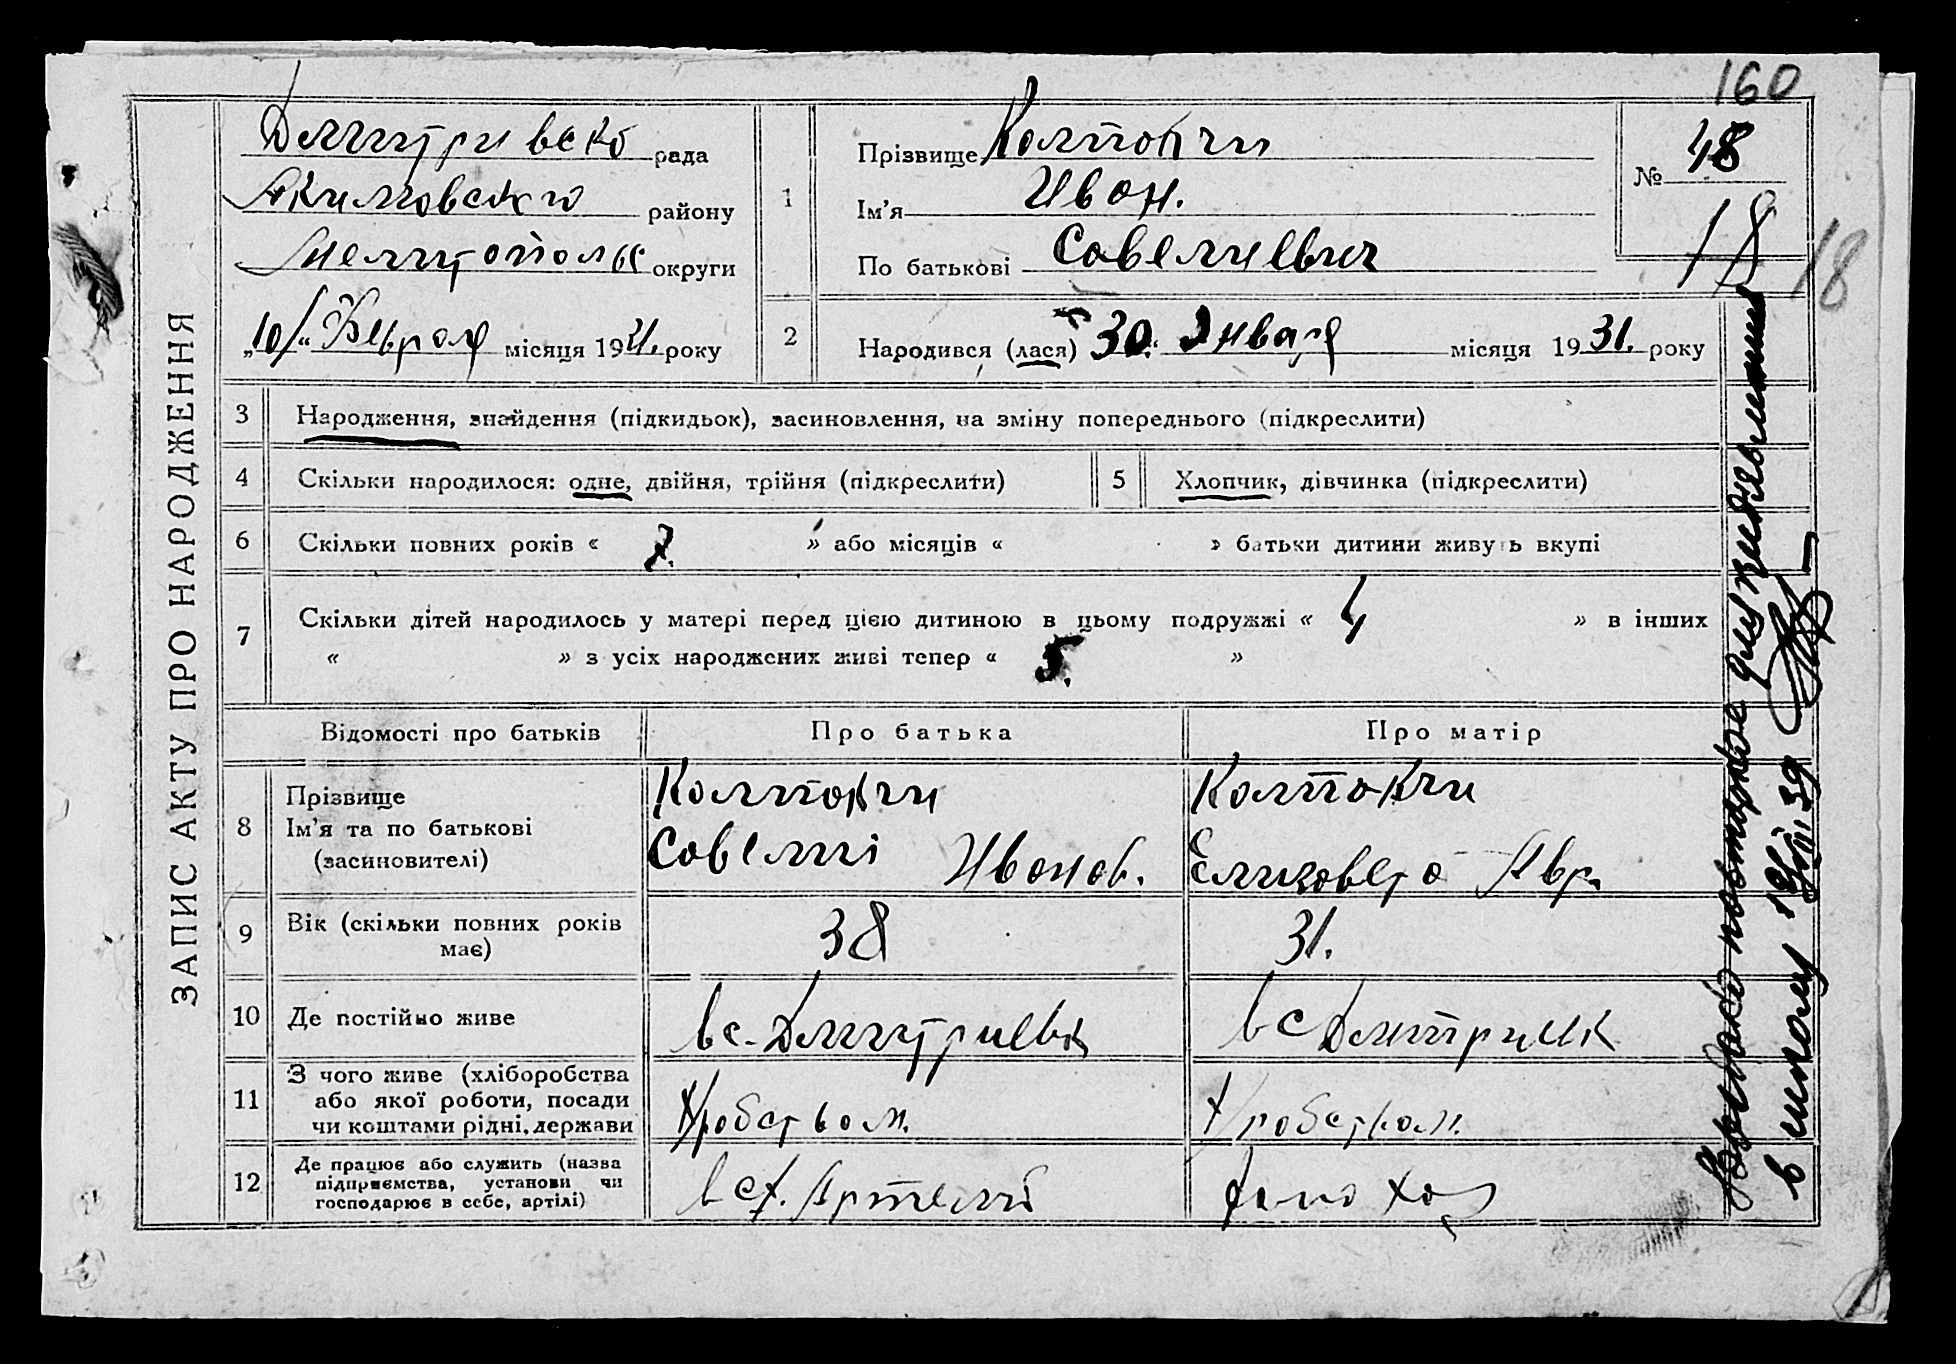 160
ЗАПИС АКТУ ПРО НАРОДЖЕННЯ
Дмитривско рада
Акимовского району
Мелитопольс округи
„10“ Февраля місяця 1931. року
1
Прізвище Колтокчи
Ім’я Иван.
По батькові Савелиевич
№ 48
18
18
2
Народився (лася) 30. Января місяця 1931. року
3 Народження, знайдення (підкидьок), засиновлення, на зміну попереднього (підкреслити)
4 Скільки народилося: одне, двійня, трійня (підкреслити)
5 Хлопчик, дівчинка (підкреслити)
6 Скільки повних років « » або місяців « » батьки дитини живуть вкупі
7 Скільки дітей народилось у матері перед цією дитиною в цьому подружжі « 4 » в інших
« » з усіх народжених живі тепер « 5. »
Відомості про батьків Про батька Про матір
8 Прізвище
Ім’я та по батькові
(засиновителі)
Колтокчи
Савелий Иванов.
Колтокчи
Елизавета Авр.
9 Вік (скільки повних років
має)
38
31.
10 Де постійно живе
в с. Дмитриевк
в с Дмитриевк
11 З чого живе (хліборобства
або якої роботи, посади
чи коштами рідні, держави
Хробством.
Хробством.
12 Де працює або служить (назва
підприємства, установи чи
господарює в себе, артілі)
в с/х. Артели
дома хоз
повторное
в школу 39